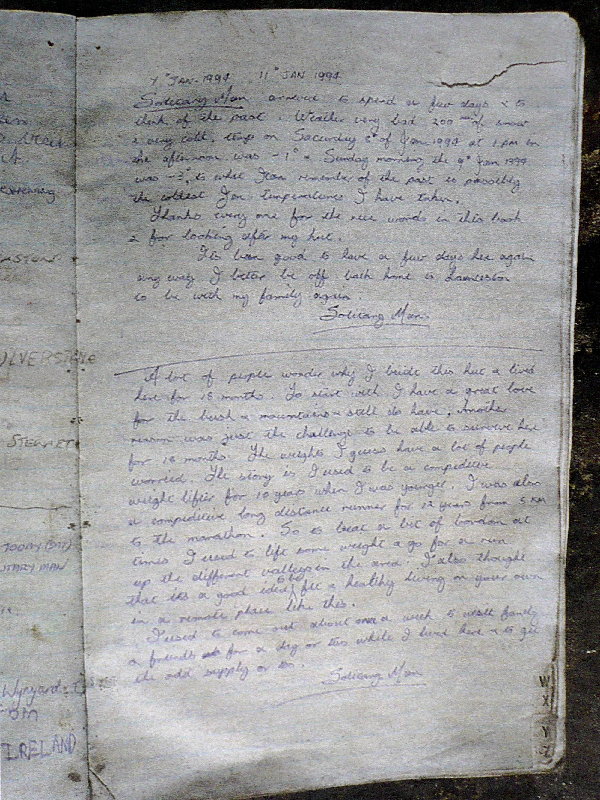 7th JAN-1994 11th JAN 1994
Solitary Man arrived to spend a few days & to
think of the past. Weather very bad 200 mm of snow
& very cold, temp on Saturday 8th of Jan 1994 at 1 pm in
the afternoon was -1° & Sunday morning the 9th Jan 1994
was -3°, to what I can remember of the past is possibly
the coldest Jan temperatures I have taken.
Thanks every one for the nice words in this book
& for looking after my hut.
Its been good to have a few days here again
any way I better be off back home to
to be with my family again.
Solitary Man.
A lot of people wonder why I built this hut & lived
here for 18 months. To start with I have a great love
for the bush & mountains & still do have. Another
reason was just the challenge to be able to survive here
for 18 months. The weights I guess have a lot of people
worried. The story is I used to be a competitive
weight lifter for 10 years when I was younger. I was also
a competitive long distance runner for 12 years from 5 km
to the marathon. So to beat a bit of boredom at
times I used to lift some weight & go for a run
up the different valleys in the area. I also thought
that its a good idea to be fit & healthy living on your own
in a remote place like this.
I used to come out about once a week to visit family
& friends for a day or two while I lived here & to get
the odd supply or so.
Solitary Man
STEWART
TODAY (BUT)
ITARY MAN
Wynyard
IRELAND
W
X
Y
Z